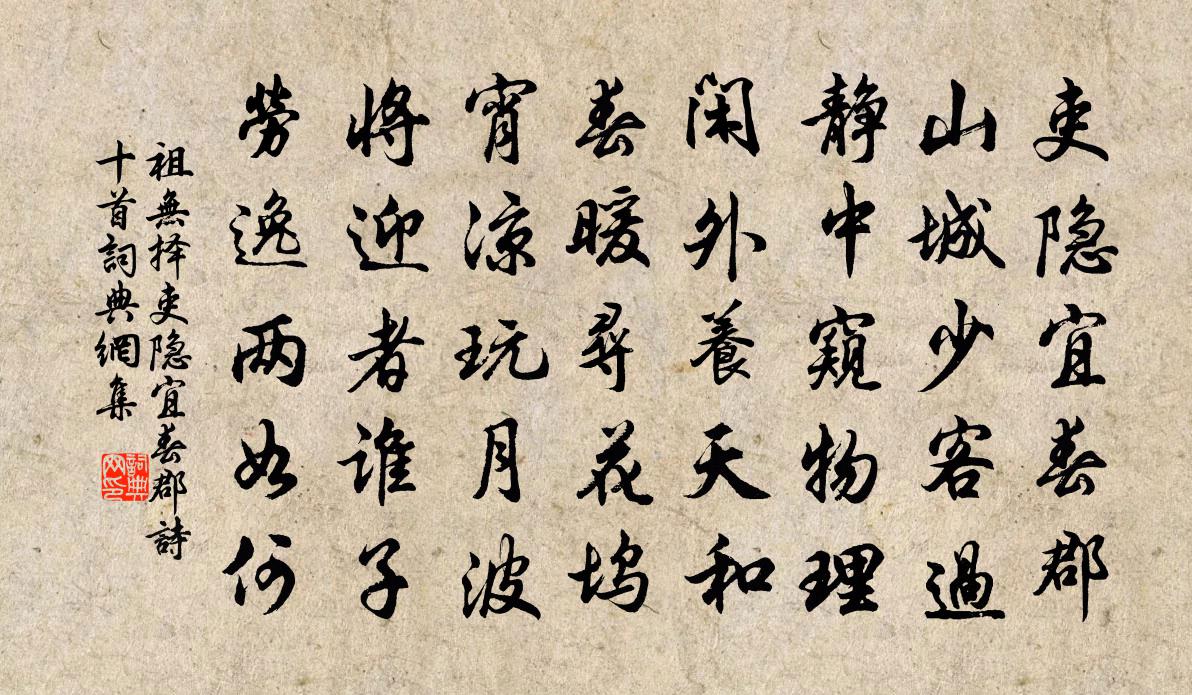 吏隐宜春郡
山城少客過
静中窥物理
闲外養天和
春暖尋花坞
宵凉玩月波
将迎者谁子
勞逸两如何
祖無择吏隐宜春郡詩
十首詞典網集
詞典
网印